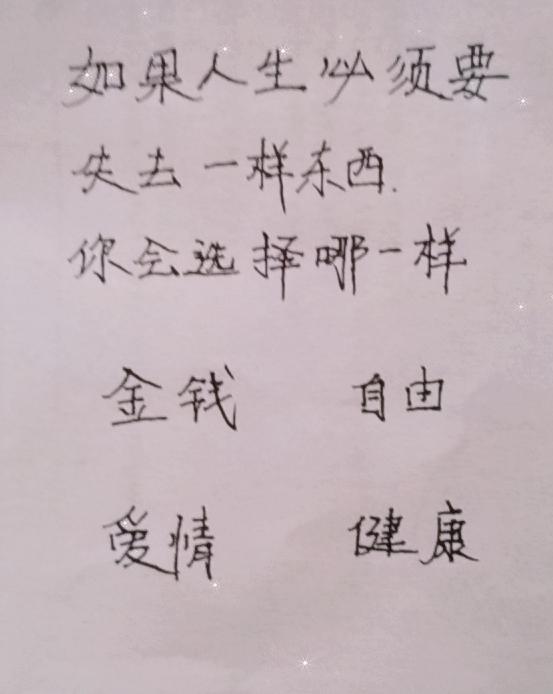 如果人生必须要
失去一样东西.
你会选择哪一样
金钱 自由
爱情 健康